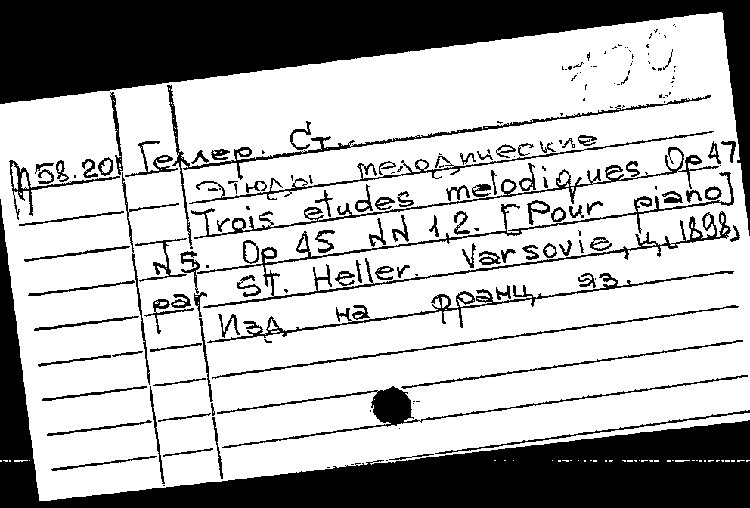 709
П58.201 Геллер. Ст.
Этюды мелодические
Trois etudes melodiques. Op 47
N 5. Op 45 NN 1,2. [Pour piano]
par ST. Heller. Varsovie, ц., 1898,
Изд. на франц. яз.